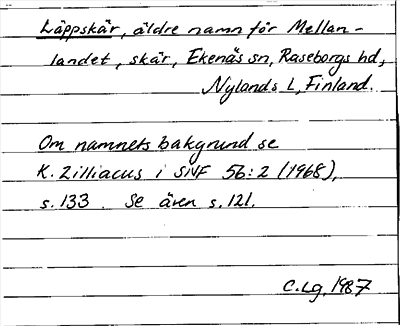 Läppskär, äldre namn för Mellan-
landet, skär, Ekenäs sn, Raseborgs hd,
Nylands L, Finland.
Om namnets bakgrund se
K. Zilliacus i SNF 56:2 (1968),
s. 133. Se även s. 121.
C. Lg, 1987